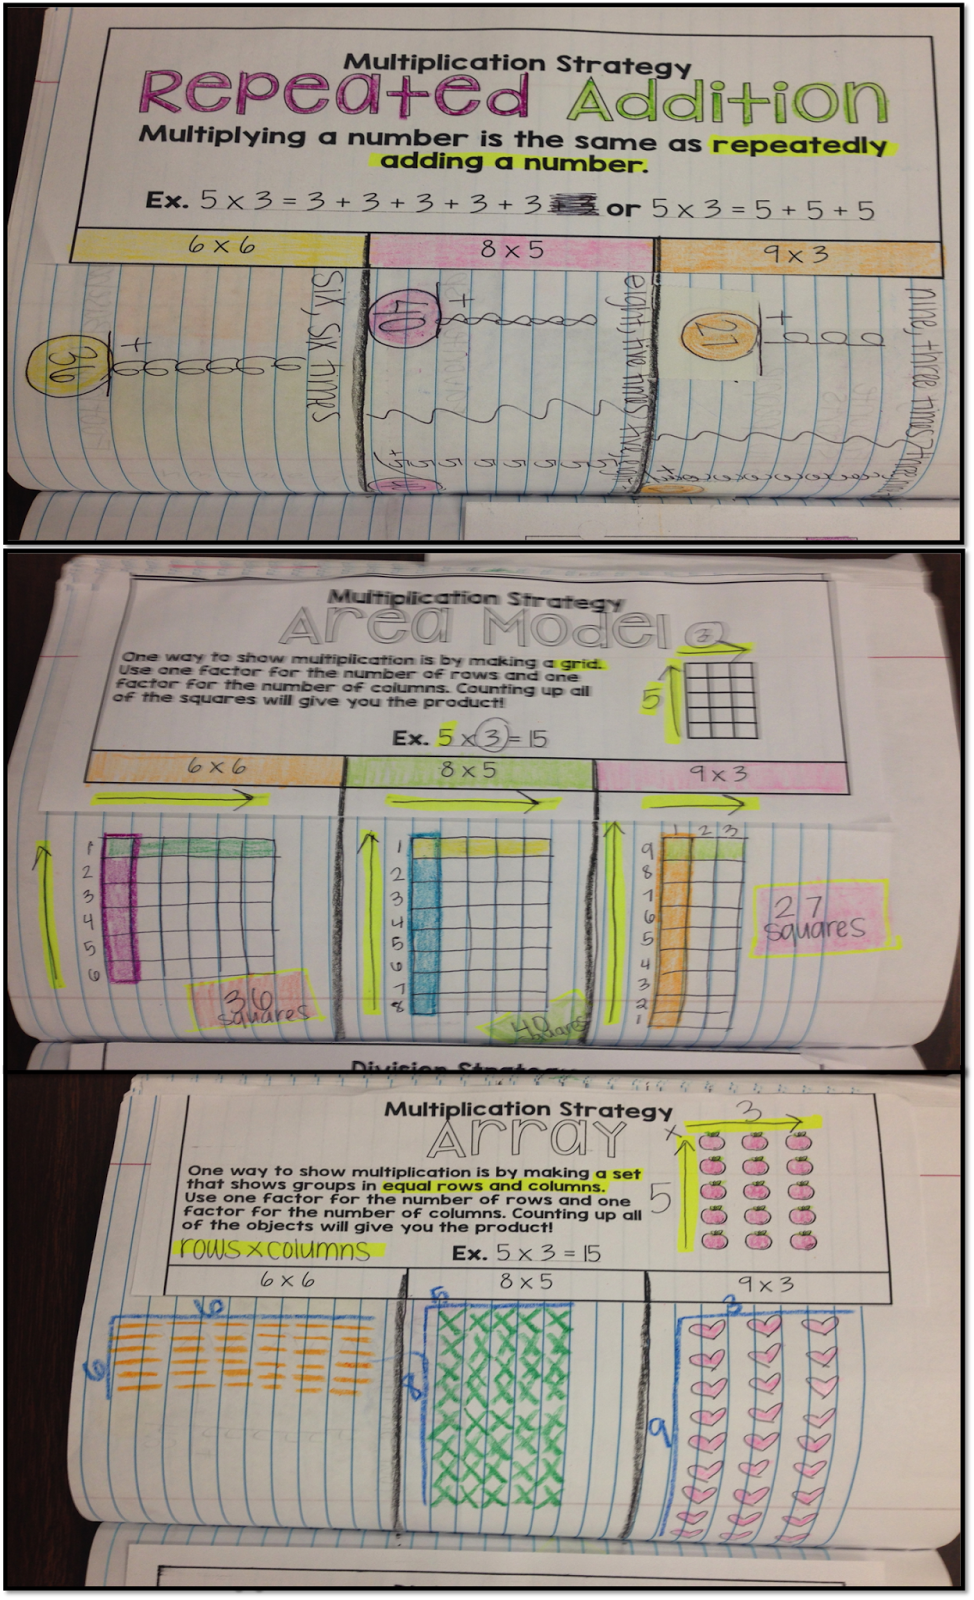 Multiplication Strategy
Repeated Addition
Multiplying a number is the same as repeatedly
adding a number.
Ex. 5 x 3 = 3 + 3 + 3 + 3 + 3 or 5 x 3 = 5 + 5 + 5
6 x 6
8 x 5
9 x 3
six, six times
6
6
6
6
6
+6
36
eight, five times
8
8
8
8
+8
40
nine, three times
9
9
+9
27
Multiplication Strategy
Area Model
One way to show multiplication is by making a grid.
Use one factor for the number of rows and one
factor for the number of columns. Counting up all
of the squares will give you the product!
3
5
Ex. 5 x 3 = 15
6 x 6
8 x 5
9 x 3
1
2
3
4
5
6
36
squares
1
2
3
4
5
6
7
8
40
squares
1 2 3
9
8
7
6
5
4
3
2
1
27
squares
Division Strategy
Multiplication Strategy
Array
One way to show multiplication is by making a set
that shows groups in equal rows and columns.
Use one factor for the number of rows and one
factor for the number of columns. Counting up all
of the objects will give you the product!
rows x columns
Ex. 5 x 3 = 15
x 3
5
6 x 6
8 x 5
9 x 3
6
6
5
8
3
9